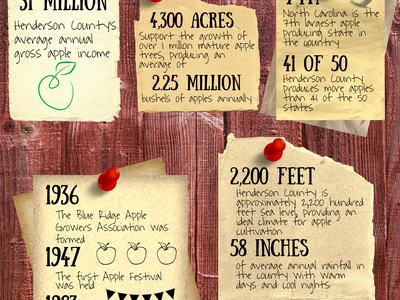 31 MILLION
Henderson County's
average annual
gross apple income
4,300 ACRES
Support the growth of
over 1 million mature apple
trees, producing an
average of
2.25 MILLION
bushels of apples annually
7TH
North Carolina is the
7th largest apple
producing state in
the country
41 OF 50
Henderson County
produces more apples
than 41 of the 50
states
1936
The Blue Ridge Apple
Growers Association was
formed
1947
The first Apple Festival
was held
2,200 FEET
Henderson County is
approximately 2,200 hundred
feet sea level, providing an
ideal climate for apple
cultivation
58 INCHES
of average annual rainfall in
the county with warm
days and cool nights